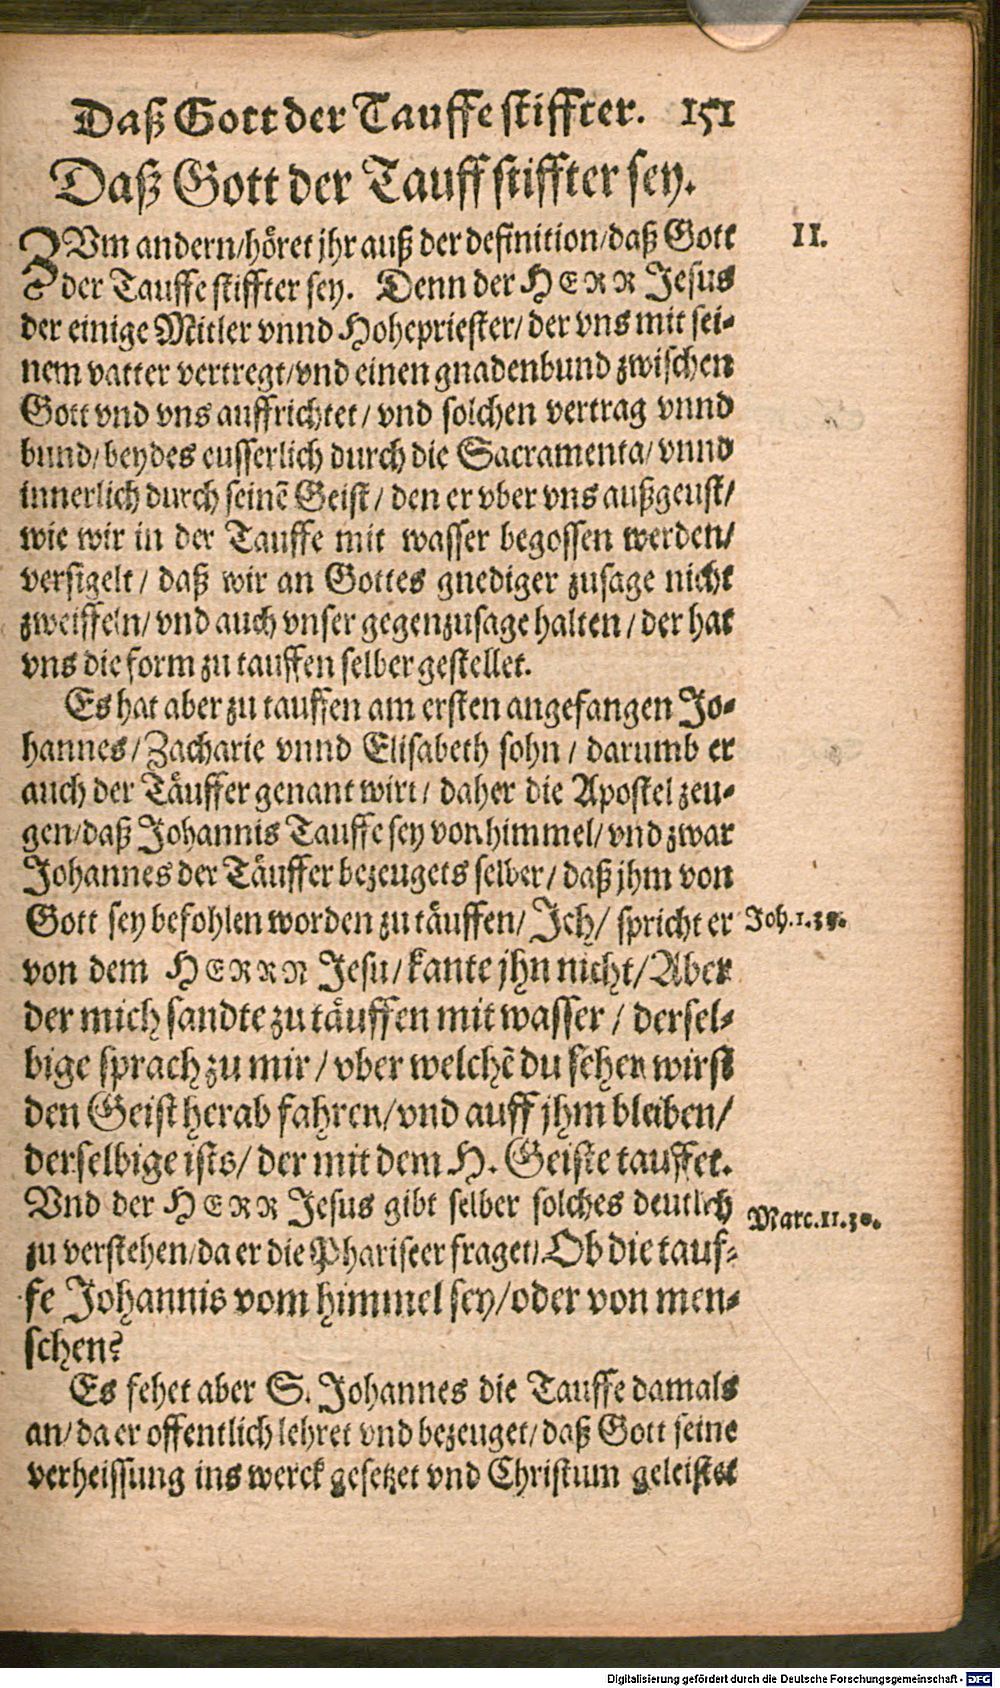 Daß Gott der Tauffe stiffter. 151
Daß Gott der Tauff stiffter sey.
ZVm andern/höret jhr auß der definition/daß Gott II.
der Tauffe stiffter sey. Denn der HERR Jesus
der einige Mitler vnnd Hohepriester/ der vns mit sei-
nem vatter vertregt/vnd einen gnadenbund zwischen
Gott vnd vns auffrichtet/ vnd solchen vertrag vnnd
bund/beydes eusserlich durch die Sacramenta/ vnnd
innerlich durch seinē Geist/ den er vber vns außgeust/
wie wir in der Tauffe mit wasser begossen werden/
versigelt/ daß wir an Gottes gnediger zusage nicht
zweiffeln/ vnd auch vnser gegenzusage halten/ der hat
vns die form zu tauffen selber gestellet.
Es hat aber zu tauffen am ersten angefangen Jo-
hannes/ Zacharie vnnd Elisabeth sohn/ darumb er
auch der Täuffer genant wirt/ daher die Apostel zeu-
gen/daß Johannis Tauffe sey von himmel/ vnd zwar
Johannes der Täuffer bezeugets selber/ daß jhm von
Gott sey befohlen worden zu täuffen/ Ich/ spricht er Joh.1.33.
von dem HERRN Jesu/ kante jhn nicht/ Aber
der mich sandte zu täuffen mit wasser/ dersel-
bige sprach zu mir/ vber welchē du sehen wirst
den Geist herab fahren/ vnd auff jhm bleiben/
derselbige ists/ der mit dem H. Geiste tauffet.
Vnd der HERR Jesus gibt selber solches deutlich Marc.11.30.
zu verstehen/da er die Phariseer fraget/ Ob die tauf-
fe Johannis vom himmel sey/oder von men-
schen?
Es fehet aber S. Johannes die Tauffe damals
an/ da er offentlich lehret vnd bezeuget/ daß Gott seine
verheissung ins werck gesetzet vnd Christum geleistet
Digitalisierung gefördert durch die Deutsche Forschungsgemeinschaft - DFG